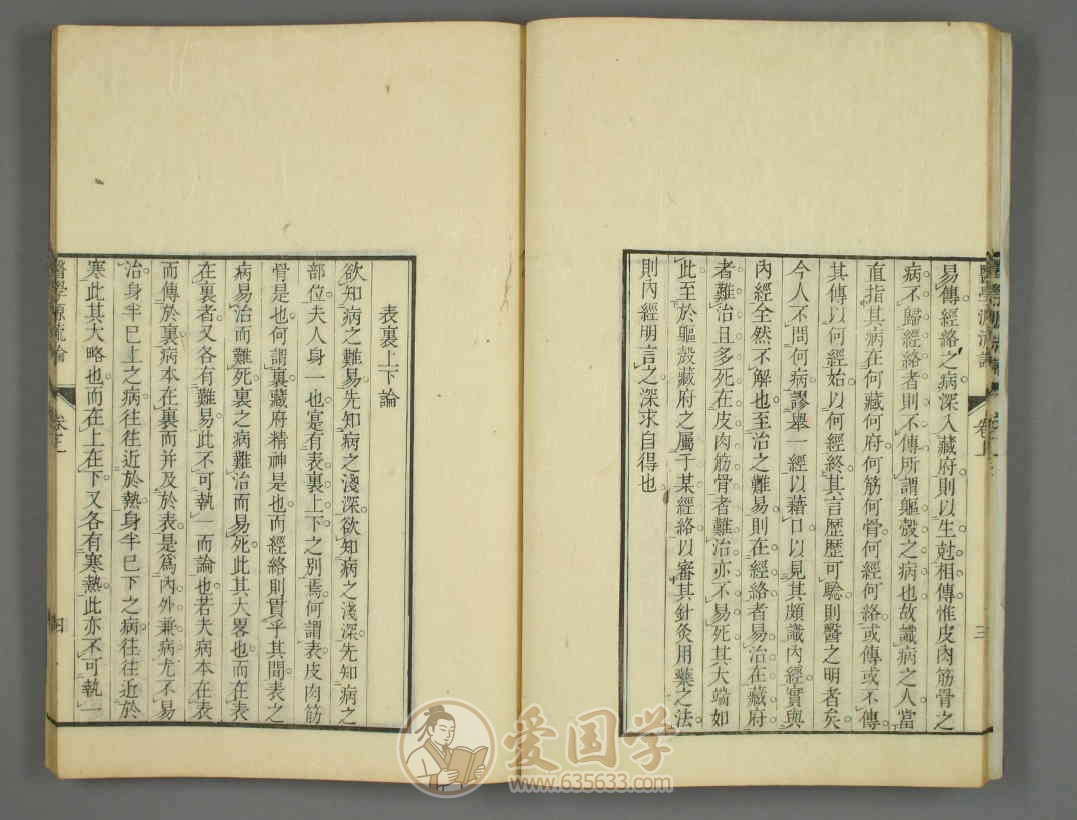 醫學源流論 卷上 三
易傳經絡之病深入藏府則以生尅相傳惟皮肉筋骨之
病不歸經絡者則不傳所謂軀殼之病也故識病之人當
直指其病在何藏何府何筋何骨何經何絡或傳或不傳
其傳以何經始以何經終其言歷歷可驗則醫之明者矣
今人不問何病謬舉一經以藉口以見其頗識內經實與
內經全然不解也至治之難易則在經絡者易治在藏府
者難治且多死在皮肉筋骨者難治亦不易死其大端如
此至於軀殼藏府之屬于某經絡以審其針灸用藥之法
則內經明言之深求自得也
表裏上下論
欲知病之難易先知病之淺深欲知病之淺深先知病之
部位夫人身一也寔有表裏上下之別焉何謂表皮肉筋
骨是也何謂裏藏府精神是也而經絡則貫乎其間表之
病易治而難死裏之病難治而易死此其大畧也而在表
在裏者又各有難易此不可執一而論也若夫病本在表
而傳於裏病本在裏而并及於表是爲內外兼病尤不易
治身半已上之病往往近於熱身半已下之病往往近於
寒此其大略也而在上在下又各有寒熱此亦不可執一
醫學源流論 四
爱国学
www.635633.com